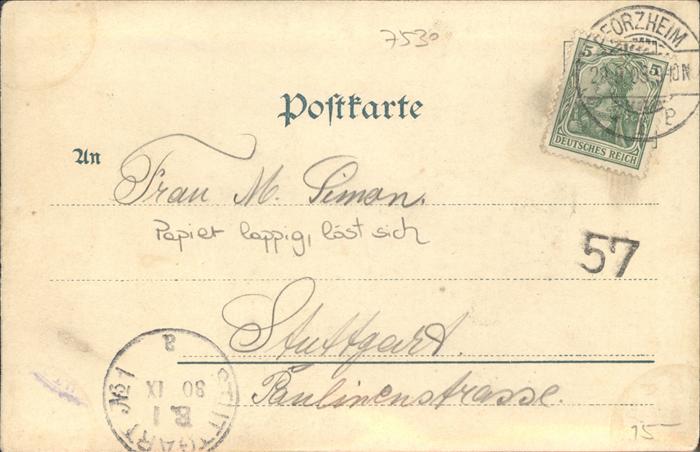 7530
PFORZHEIM
5 5
DEUTSCHES REICH
Postkarte
An
Frau M. Simon.
Papier lappig, löst sich
57
Stuttgart.
Paulinenstrasse.
STUTTGART No 1
a
30 IX
15-